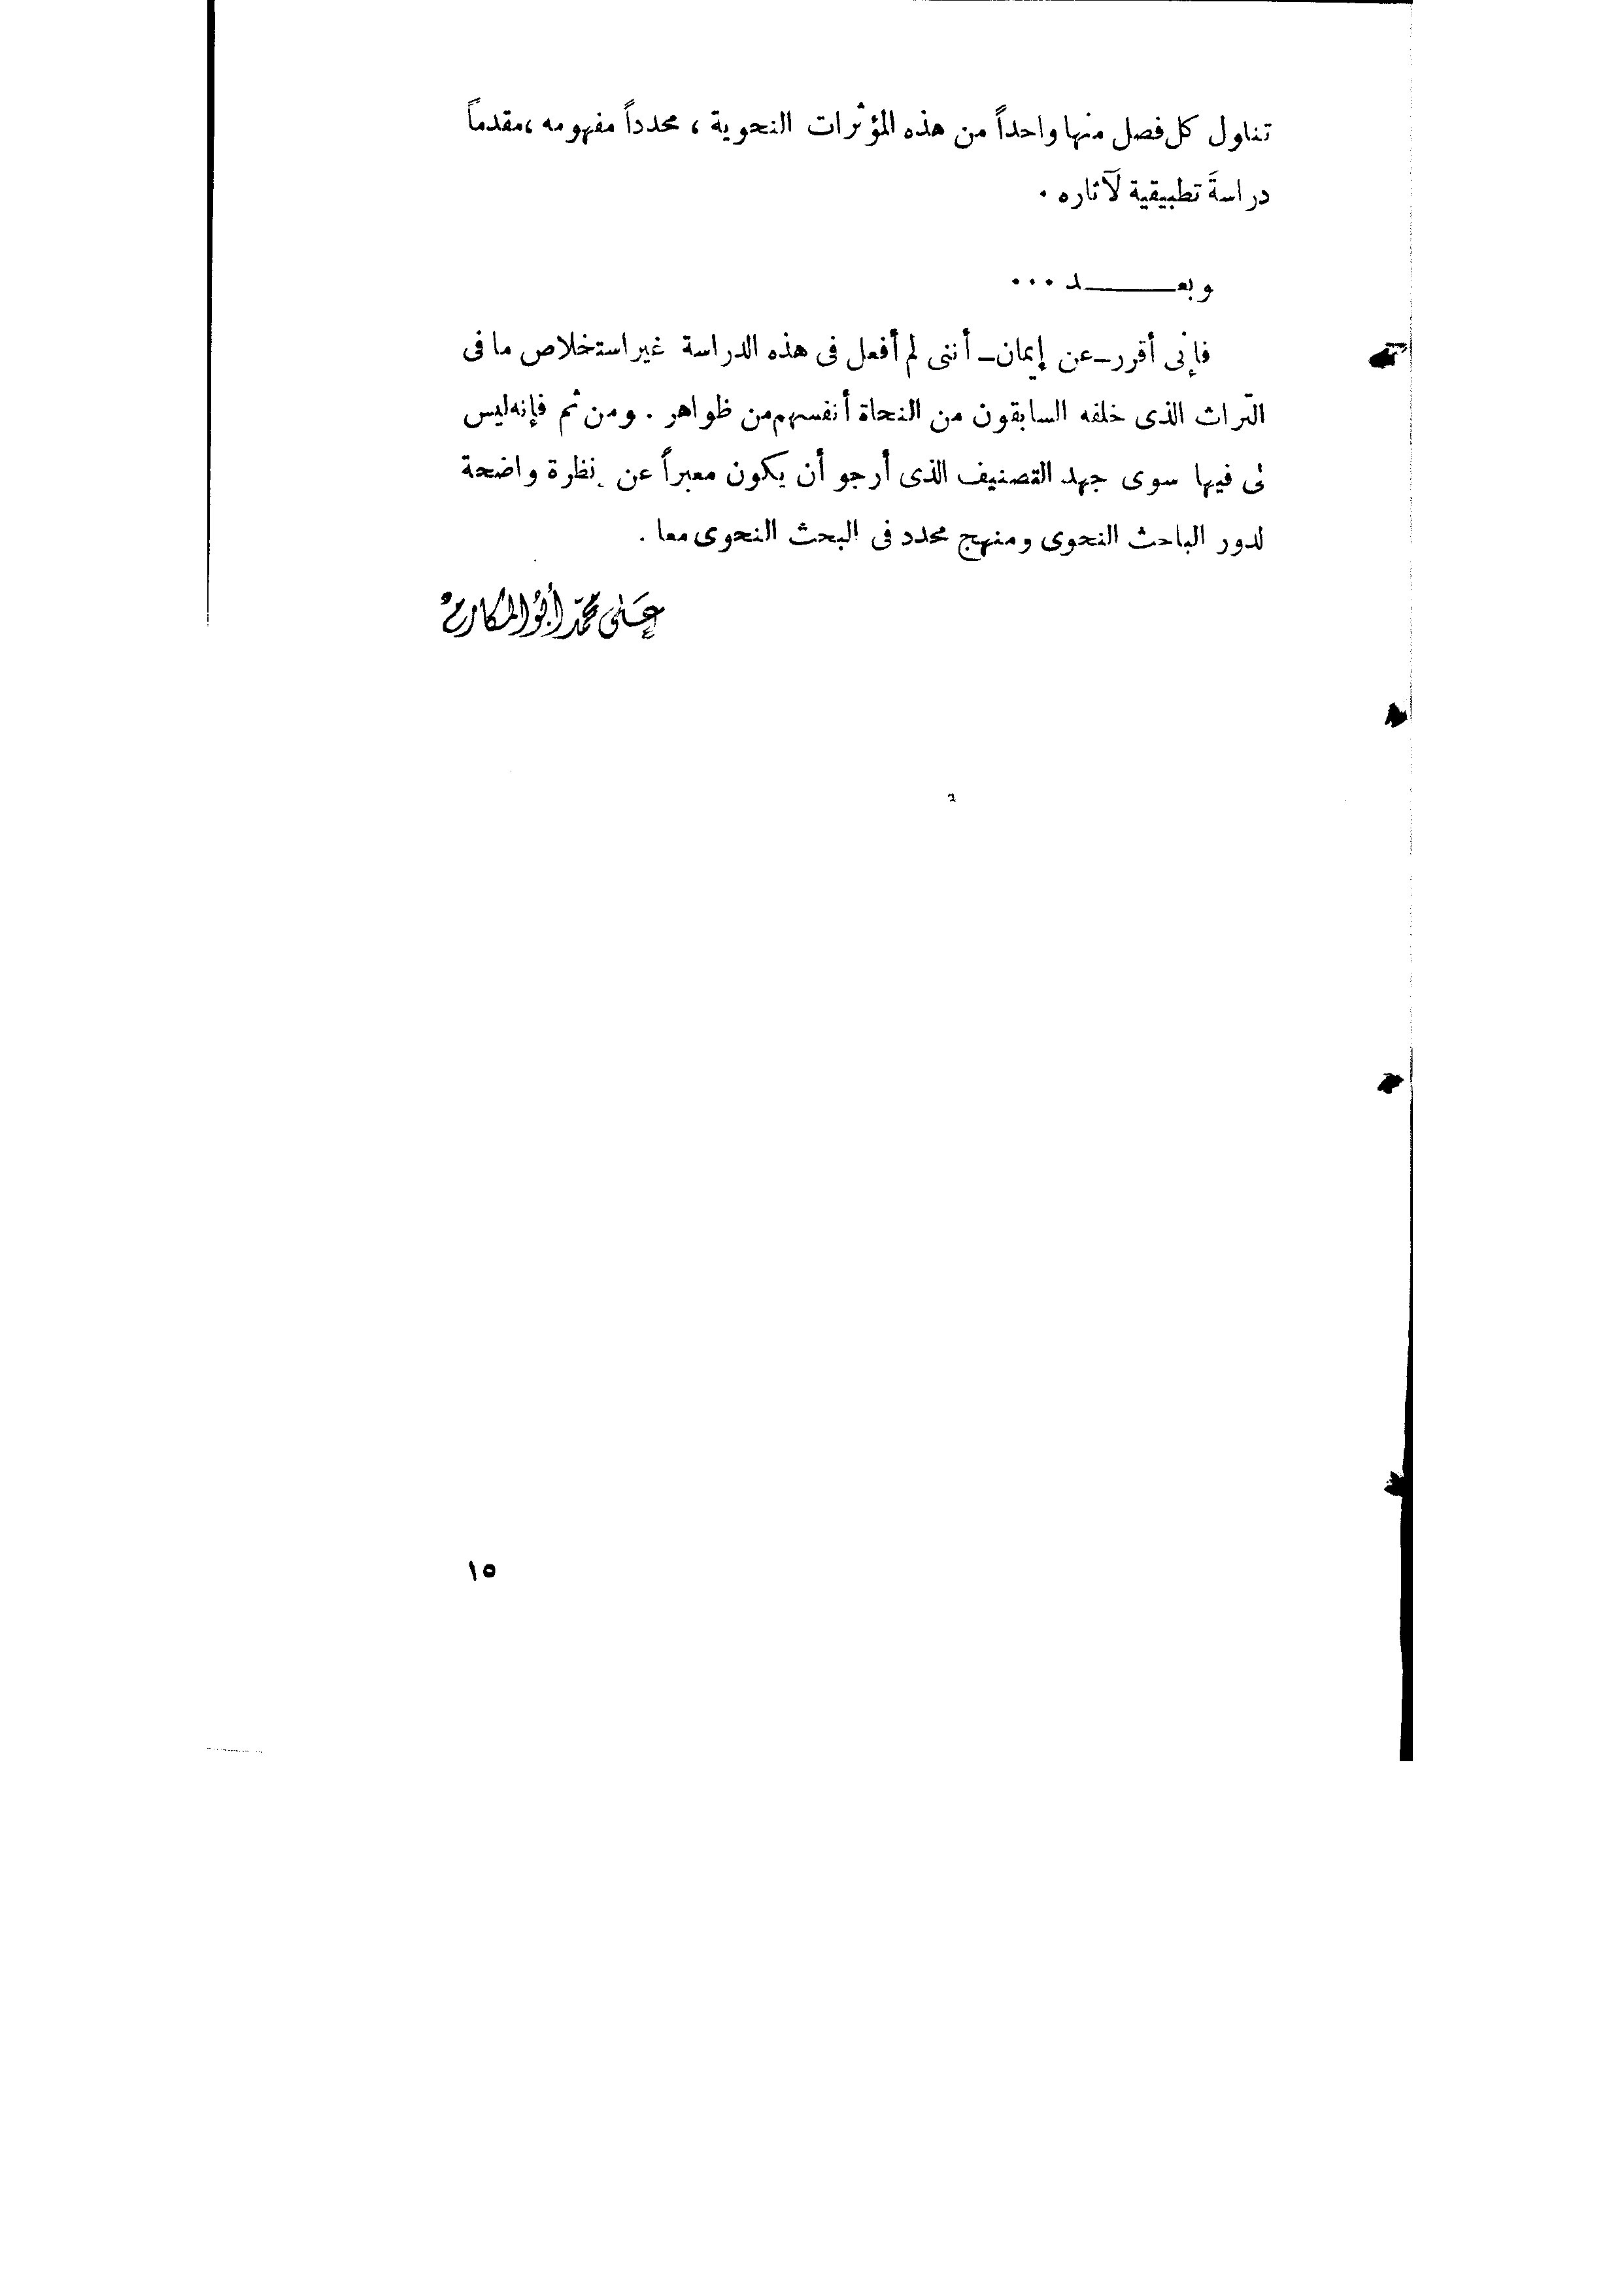 تناول كل فصل منها واحداً من هذه المؤثرات النحوية ، محدداً مفهومه ، مقدماً
دراسةَ تطبيقية لآثاره .
وبعـــــد ...
فإنى أقرر – عن إيمان – أننى لم أفعل فى هذه الدراسة غير استخلاص ما فى
التراث الذى خلفه السابقون من النحاة أنفسهم من ظواهر . ومن ثم فإنه ليس
لى فيها سوى جهد التصنيف الذى أرجو أن يكون معبراً عن نظرة واضحة
لدور الباحث النحوى ومنهج محدد فى البحث النحوى معا .
على محمد أبو المكارم
١٥